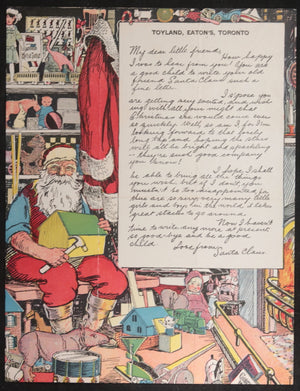 TOYLAND, EATON'S, TORONTO
My dear little friend:
How happy
I was to hear from you! You are a
good child to write your old
friend Santa Claus such a
fine letter.
I suppose you
are getting very excited, and
with all your might that
Christmas she would come ever
so quickly. Well so am I for I'm
looking forward to that lovely
will all be bright and sparkling
— they're such good company
you know!
I hope I shall
be able to bring all the things
you want, but if I don't you
mustn't be too disappointed for
there are so very many little
girls and boys in the world, I like
great stacks to go around.
Now I haven't
time to write any more at present
so good-bye and be a good
child.
Love from,
Santa Claus